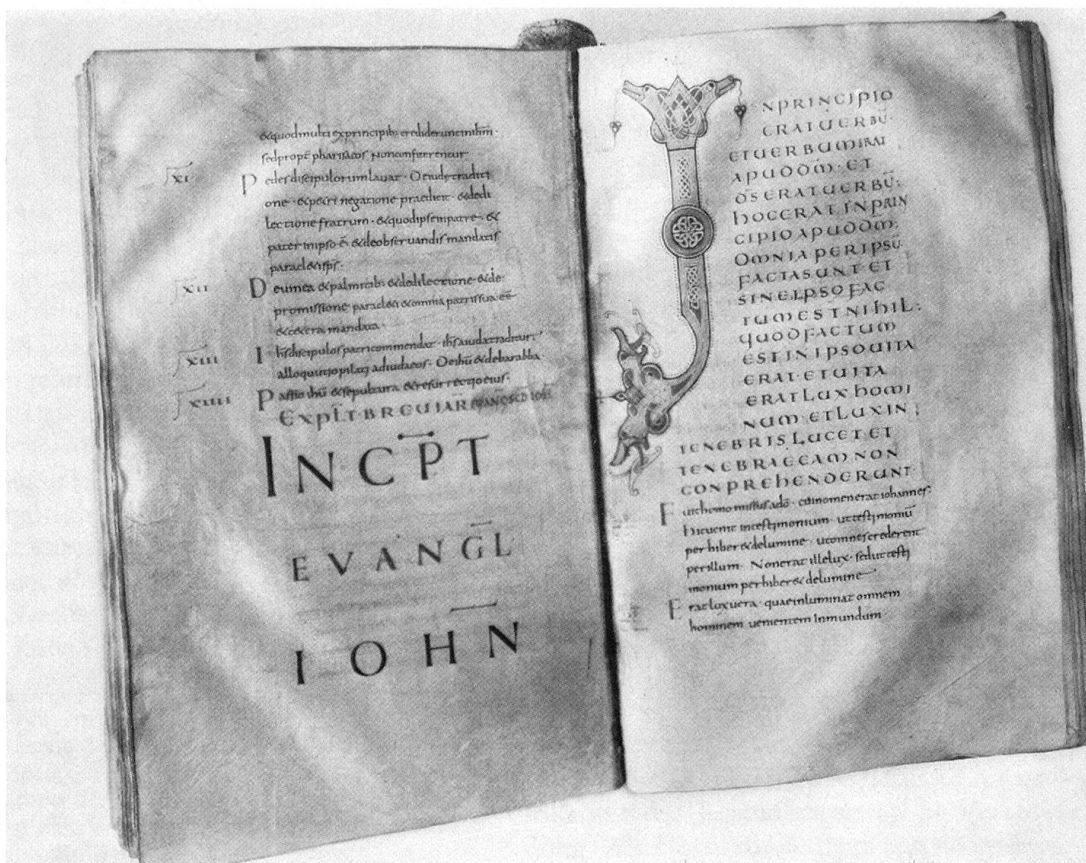 &quod multi ex principib; crediderunt in ihm̄·
sed propt̄ pharisaeos non confiterentur
XI· Pedes discipulorum lauat· De iudę tradici
one· &petri negatione praedicit· &dedi
lectione fratrum· &quod ipse in patre· &
pater in ipso ē· &de obseruandis mandatis
paracl&i sp̄s·
XII De uinea &palmitib; &de dilectione· &de
promissione paracl&i &omnia patris sua eē
&c&era mandata·
XIII Ih̄s discipulos patri commendat· ih̄s a iuda traditur·
alloquitur pilatus ad iudaeos· De ih̄u &de barabba
XIIII Passio ih̄u &sepultura &resurrectio eius·
EXPLĪT·BREUIAR̄
INCP̄T
EVANGL̄
IOHN̄
INPRINCIPIO
ERATUERBŪ·
ETUERBUMERAT
APUDDM̄·ET
DS̄ERATUERBŪ:
hOCERATINPRIN
CIPIOAPUDDM̄:
OMNIAPERIPSŪ
FACTASUNT·ET
SINEIPSOFAC
TUMESTNIhIL:
quODFACTUM
ESTINIPSOUITA
ERAT·ETUITA
ERATLUXhOMI
NUM·ETLUXIN
TENEBRISLUCETET
TENEBRAEEAMNON
CONPREhENDERUNT·
Fuit homo missus adō· cui nomen erat iohannes·
hic uenit in testimonium· ut testimoniū
perhiber& de lumine· ut omnes crederent
per illum· Non erat ille lux· sed ut testi
monium perhiber& de lumine
Erat lux uera· quae inluminat omnem
hominem uenientem In mundum·